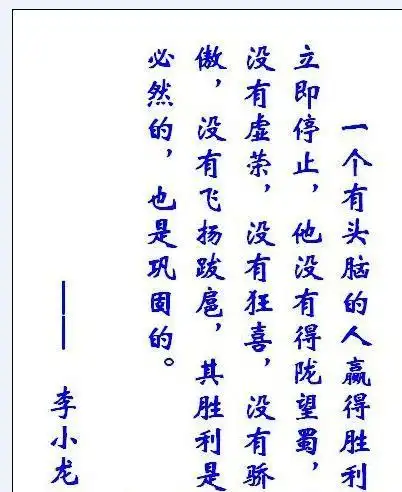 一个有头脑的人赢得胜利
立即停止，他没有得陇望蜀，
没有虚荣，没有狂喜，没有骄
傲，没有飞扬跋扈，其胜利是
必然的，也是巩固的。
——李小龙